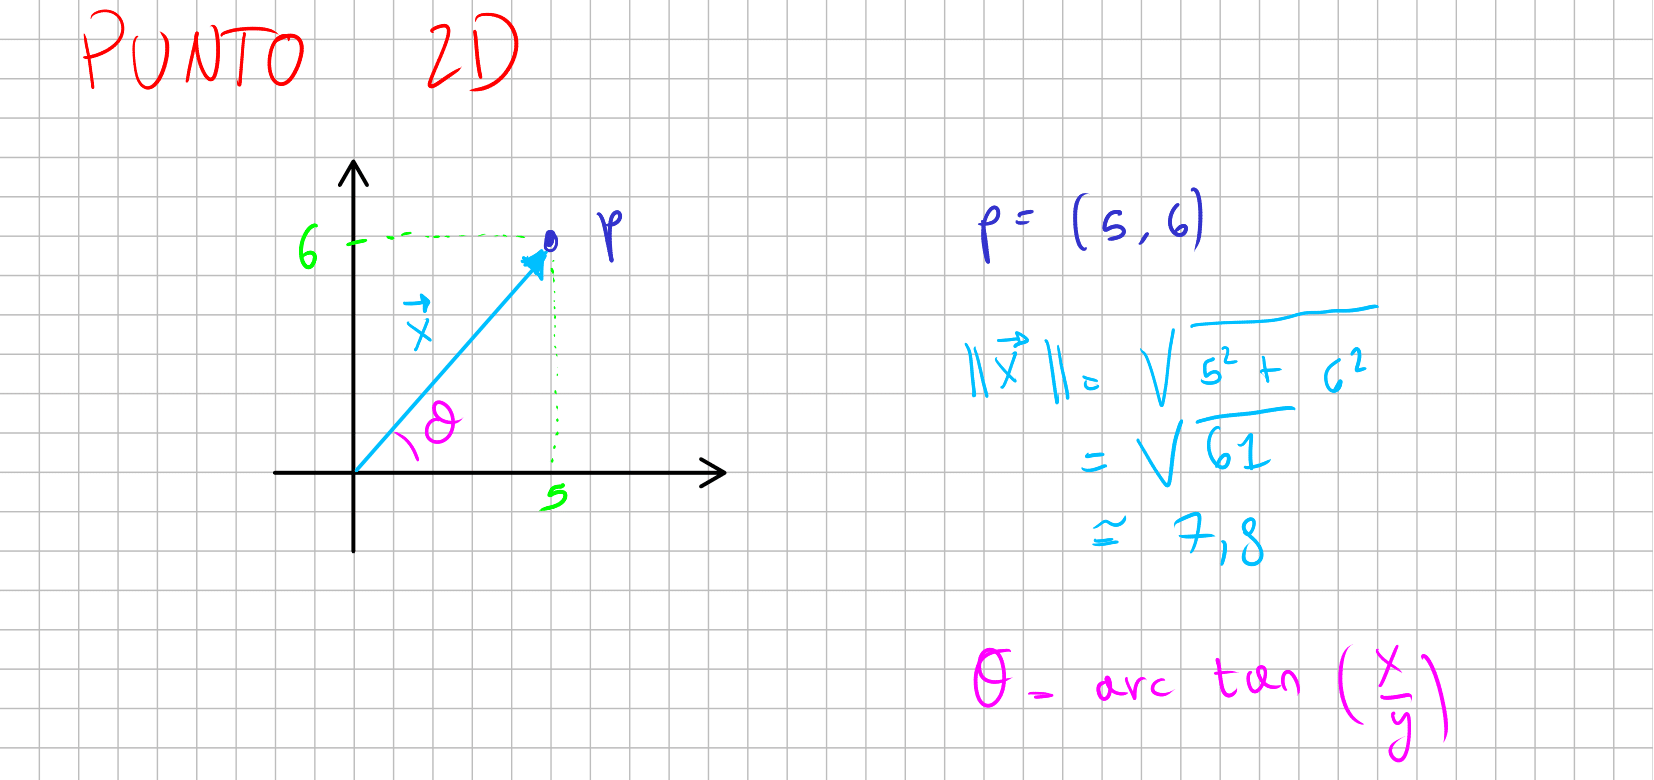 PUNTO 2D
6
p
x⃗
θ
5
p = (5, 6)
‖x⃗‖ = √(5² + 6²)
= √61
≅ 7,8
θ = arc tan (x/y)